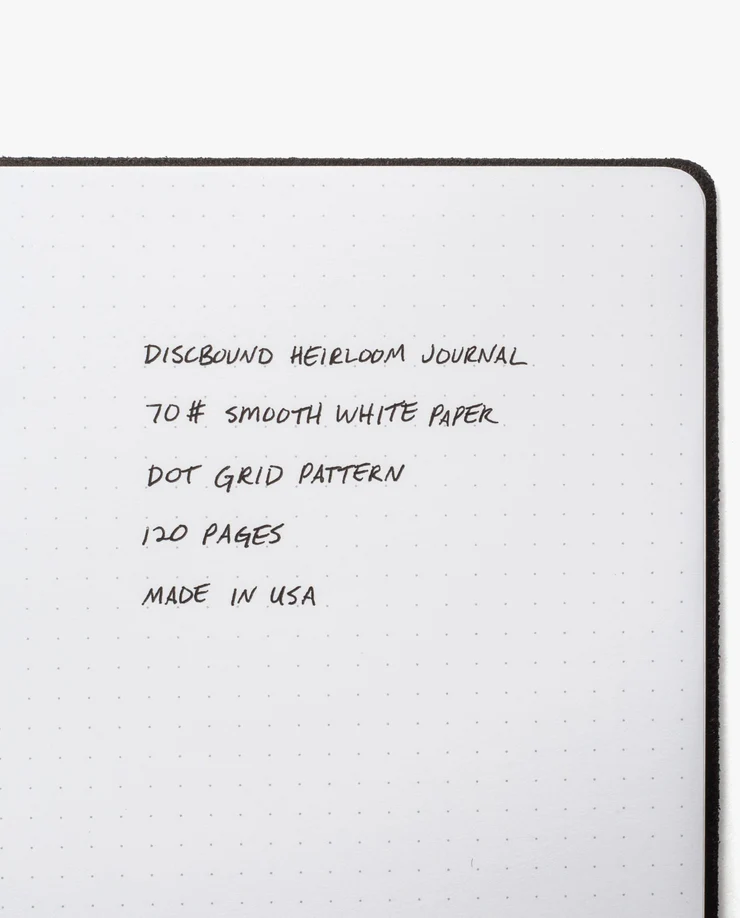 DISCBOUND HEIRLOOM JOURNAL
70# SMOOTH WHITE PAPER
DOT GRID PATTERN
120 PAGES
MADE IN USA